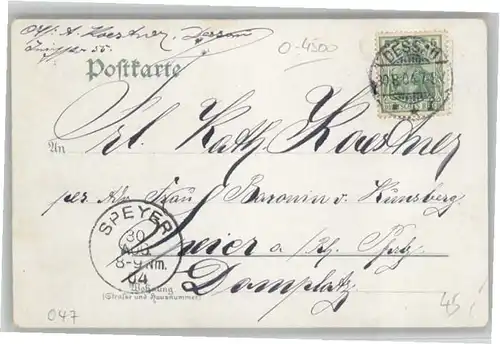 Abs. A. Koestner, Dessau
55.
0-4500
Postkarte
DESSAU
30.8.04.7-8
An Frl. Käth Koestner
per Adr. Frau Baronin v. Künsberg
Speier a/Rh. Pfalz
Domplatz
SPEYER
30
AUG
8-9 Nm.
04
Wohnung
(Straße und Hausnummer)
047
45